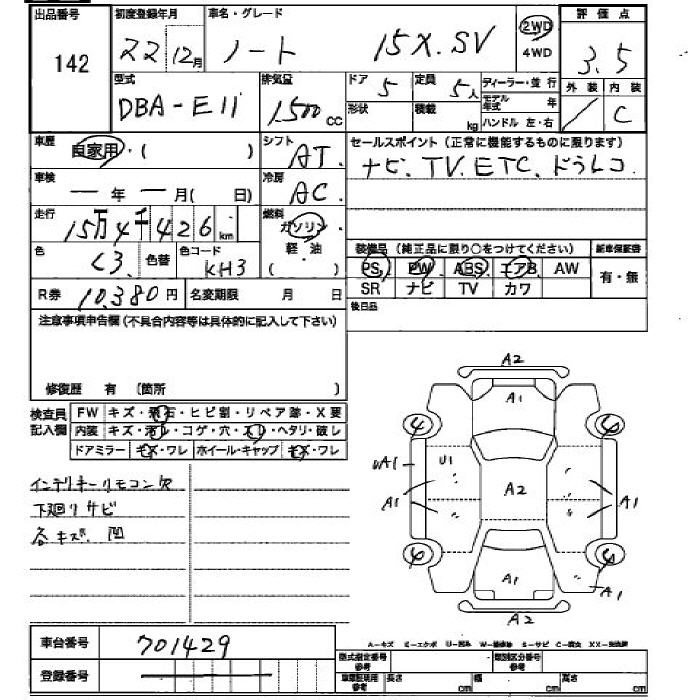 出品番号 初度登録年月 車名・グレード 評価点
142 22 12月 ノート 15X.SV 2WD 4WD 3.5
型式 排気量 ドア 5 定員 5人 ディーラー・並行 外装 内装
DBA-E11 1500 cc 形状 積載 kg モデル年式 年 ハンドル 左・右 / C
車歴 自家用・( ) シフト AT. セールスポイント (正常に機能するものに限ります)
ナビ. TV. ETC. ドラレコ
車検 年 月( 日) 冷房 AC.
走行 15万4千426 km 燃料 ガソリン 軽・油 ( )
色 色替 色コード KH3
装備品 (純正品に限り○をつけてください) 新車保証書
PS PW ABS エアB AW 有・無
SR ナビ TV カワ
R券 10,380円 名変期限 月 日 後日品
注意事項申告欄(不具合内容等は具体的に記入して下さい)
修復歴 有 (箇所 )
検査員記入欄 FW キズ・飛石・ヒビ割・リペア跡・X要
内装 キズ・汚レ・コゲ・穴・スレ・ヘタリ・破レ
ドアミラー キズ・ワレ ホイール・キャップ キズ・ワレ
インテリキーリモコン欠
下廻リサビ
各キズ. 凹
A2
A1
4 6
UA1 U1
A2
A1 A1
6 6
A1 A1
A2
車台番号 701429
登録番号
A-キズ E-エクボ U-凹み W-補修跡 S-サビ C-腐食 XX-交換済
型式指定番号 参考 類別区分番号 参考
車庫証明用 参考 長さ cm 幅 cm 高さ cm